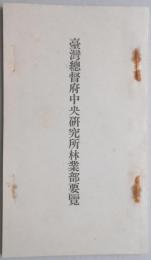 臺灣總督府中央硏究所林業部要覽